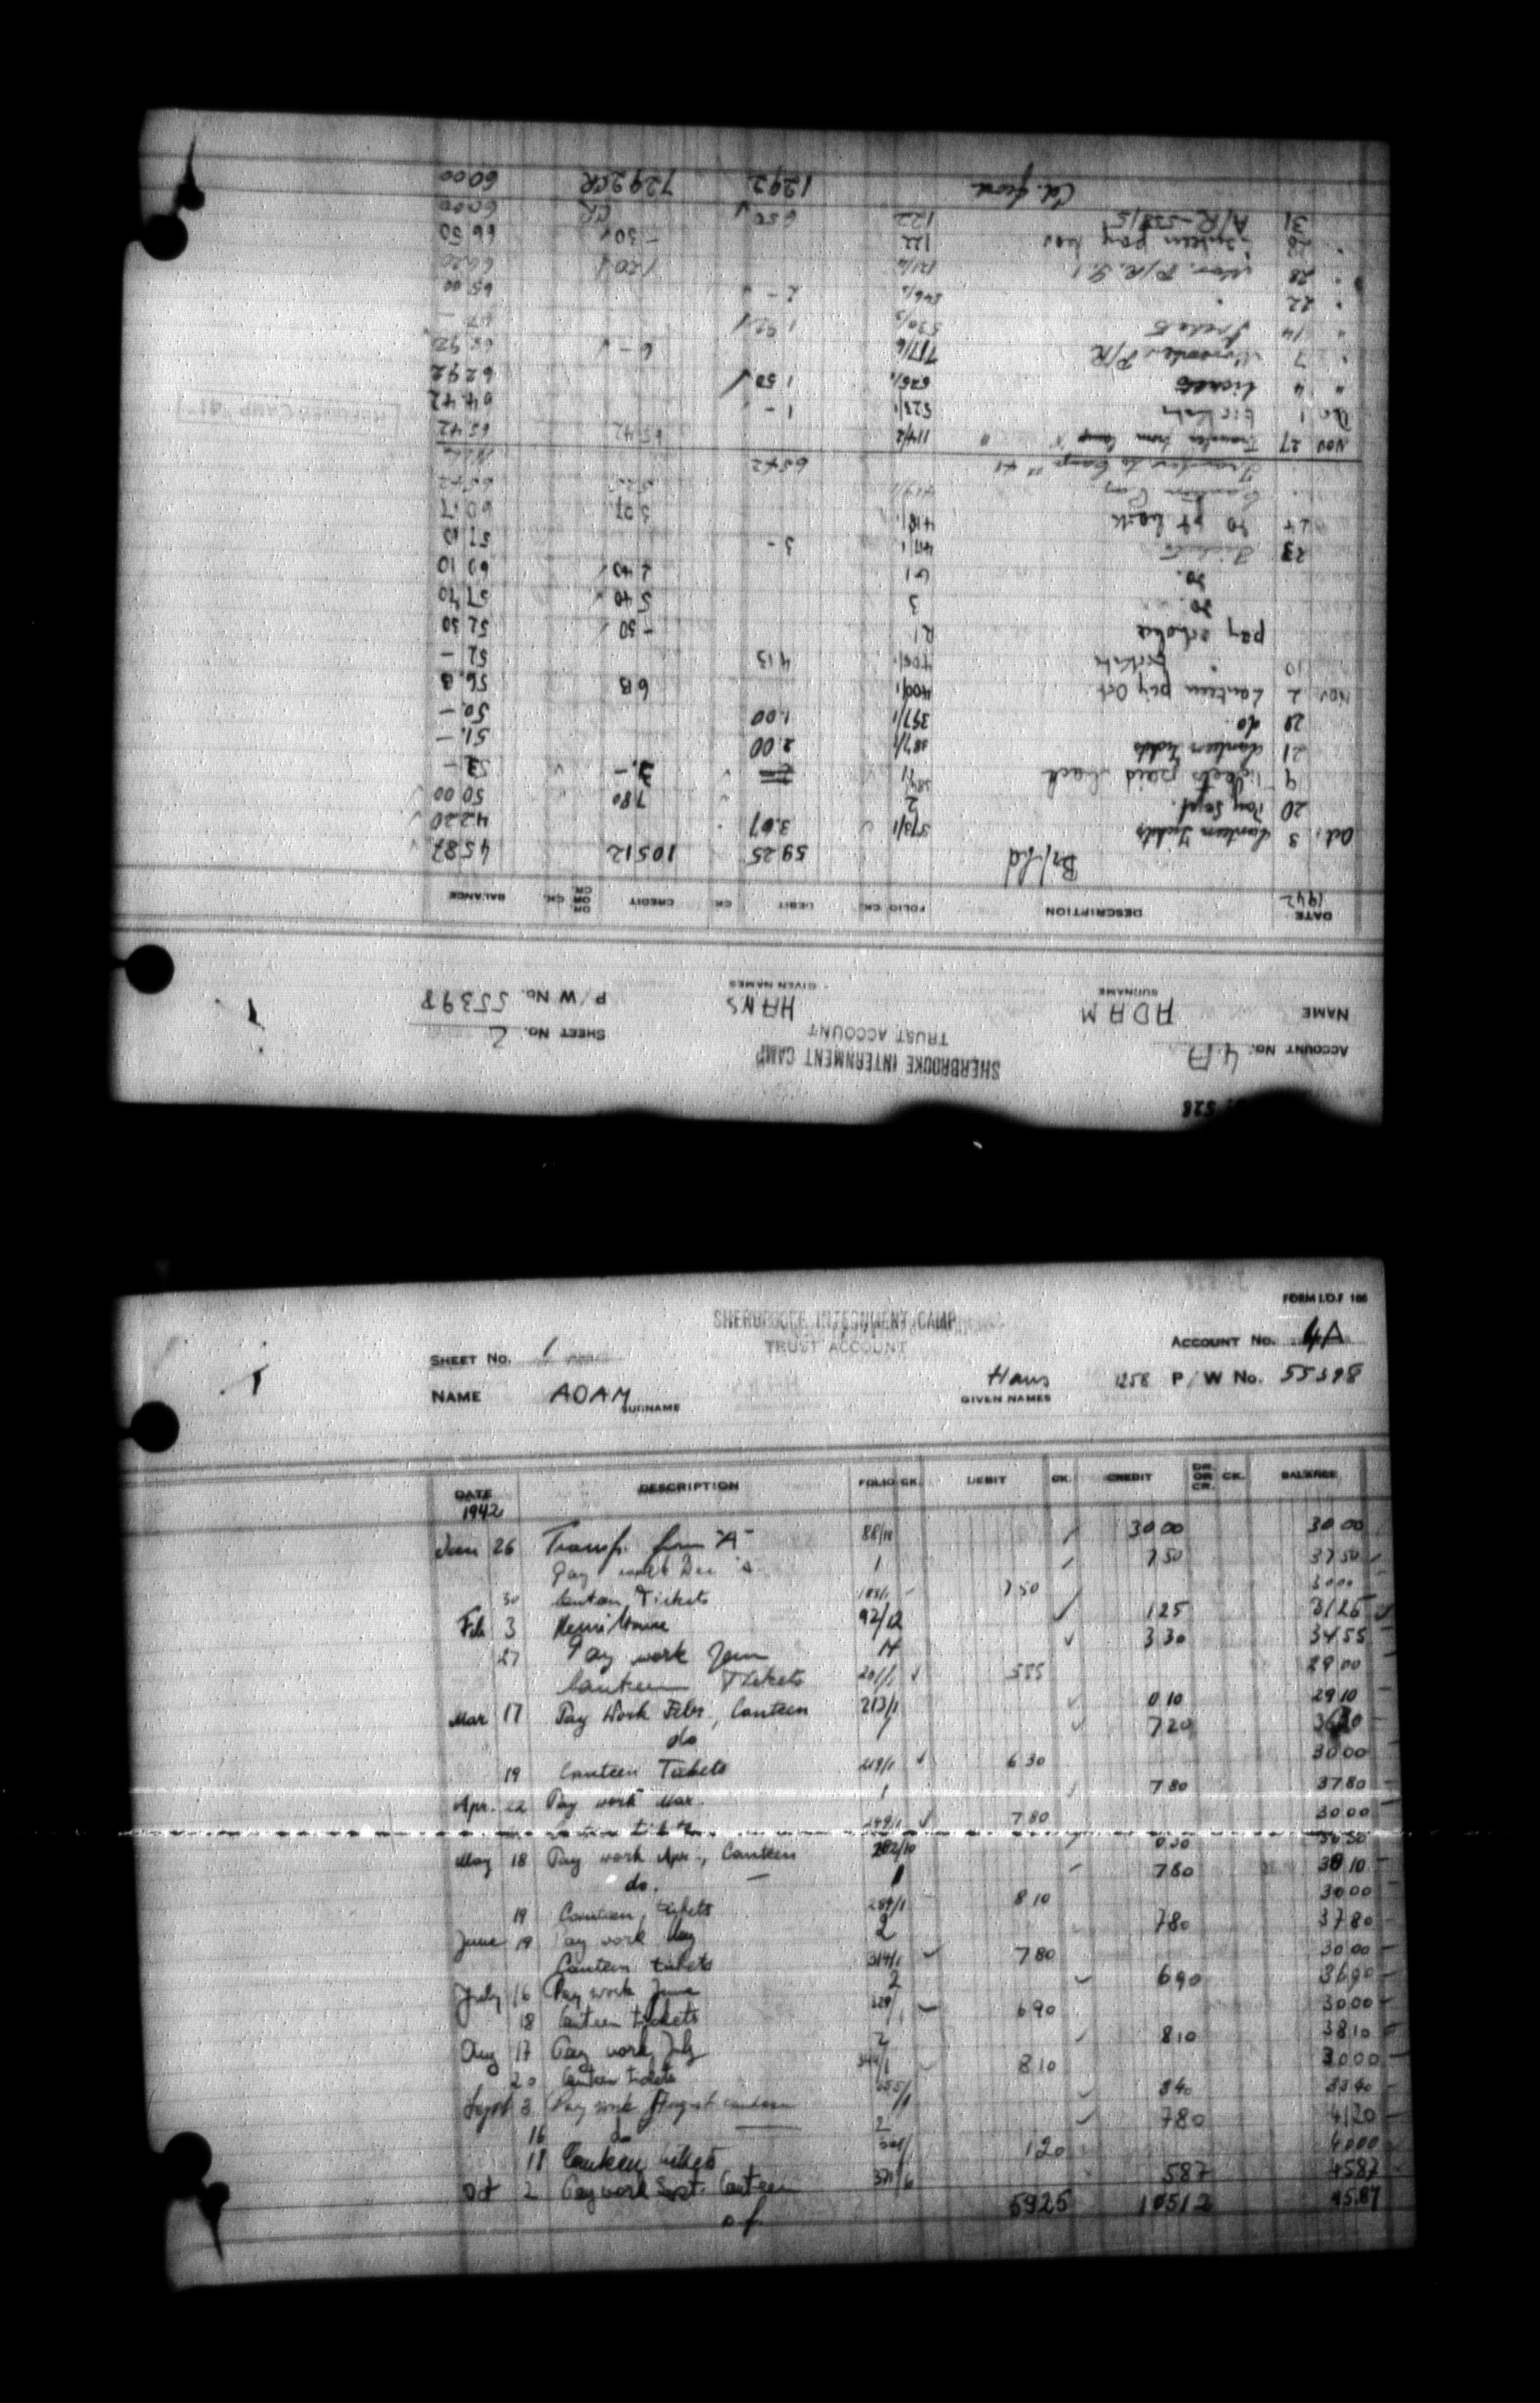 FORM I.O.F 106
SHERBROOKE INTERNMENT CAMP
TRUST ACCOUNT
SHEET No. 1 ACCOUNT No. 4A
NAME ADAM Hans 1258 P/W No. 55398
SURNAME GIVEN NAMES
DATE DESCRIPTION FOLIO CK. DEBIT CK. CREDIT DR. OR CR. CK. BALANCE
1942
Jan 26 Transf. from "A" 88/ 30 00 30 00
Pay work Dec 1 7 50 37 50
30 Canteen Tickets 7 50 30 00
Feb 3 92/12 1 25 31 25
27 Pay work Jan 14 3 30 34 55
Canteen Tickets 201/1 5 55 29 00
Mar 17 Pay Work Febr., Canteen 213/1 0 10 29 10
do 1 7 20 36 30
19 Canteen Tickets 219/1 6 30 30 00
Apr. 22 Pay work Mar. 1 7 80 37 80
7 80 30 00
May 18 Pay work Apr., Canteen 282/10 0 30 30 30
do. 1 7 80 38 10
19 Canteen tickets 284/1 8 10 30 00
June 19 Pay work May 2 7 80 37 80
Canteen tickets 314/1 7 80 30 00
July 16 Pay work June 2 6 90 36 90
18 Canteen tickets 329/1 6 90 30 00
Aug 17 Pay work July 2 8 10 38 10
20 Canteen tickets 344/1 8 10 30 00
Sept 3 Pay work August canteen 355/1 3 40 33 40
16 do 2 7 80 41 20
18 Canteen tickets 1 20 40 00
Oct 2 Pay work Sept. Canteen 371/6 5 87 45 87
of 59 25 105 12 45 87
528
SHERBROOKE INTERNMENT CAMP
TRUST ACCOUNT
ACCOUNT No. 4A SHEET No. 2
NAME ADAM HANS P/W No. 55398
SURNAME GIVEN NAMES
DATE DESCRIPTION FOLIO CK. DEBIT CK. CREDIT DR. OR CR. CK. BALANCE
1942
Br/fd 59 25 105 12 45 87
Oct. 3 Canteen Tickets 373/1 3.67 42 20
20 Pay Sept. 2 7 80 50 00
9 Tickets paid back 3.- 53 -
21 Canteen Tickets 387/1 2.00 51. -
29 do. 397/1 1.00 50. -
Nov 2 Canteen pay Oct 400/1 6 13 56 13
10 " tickets 4 13 52 -
pay 21 - 50 52 50
do. 3 5 40 57 90
do. 61 2 40 60 10
23 417/1 3 - 57 10
24 do pt back 418/1 3 07 60 17
Canteen Pay 5 25 65 42
Transfer to Camp "41 65 42
Nov 27 Transfer from Camp 114/2 65 42 65 42
Dec 1 tickets 523/1 1 - 64.42
" 4 tickets 525/1 1.50 62 92
" 7 November P/R 117/6 6 - 68 92
" 14 Tickets 530/3 1 92 67 -
" 22 " 546/2 2 - 65 00
" 28 Nov. P/R 121/4 1 20 66 20
" 28 Canteen pay Nov 122 - 30 66 50
31 A/R-528/5 122 6 50 CR 60 00
Cd. fwd 12 92 72 92 CR 60 00